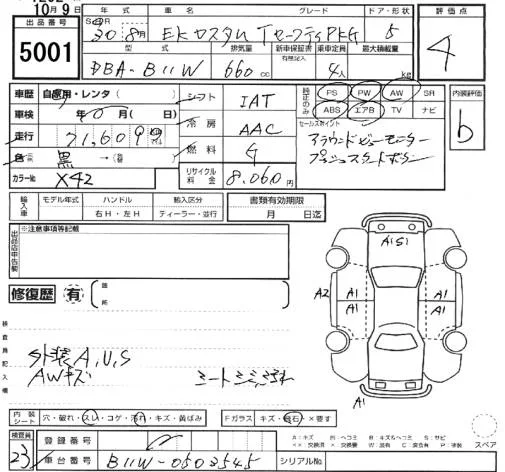 10月9日
出品番号
5001
年式 車名 グレード ドア・形状 評価点
30 8月 EKカスタム Tセーフティ PKG 5
4
型式 排気量 新車保証書 有無記入 乗車定員 最大積載量
DBA-B11W 660cc 4人 kg
車歴 自家用・レンタ( ) シフト IAT
純正のみ PS PW AW SR
ABS エアB TV ナビ
内装評価
b
車検 年0月( 日) 冷房 AAC
セールスポイント
アラウンドビューモニター
プッシュスタートボタン
走行 71,609 燃料 G
色 黒
カラー№ X42 リサイクル料金 8.060円
輸入車 モデル年式 ハンドル 輸入区分 書類有効期限
右H・左H ディーラー・並行 月 日迄
出品店申告欄 ※注意事項等記載
修復歴 有 箇所
A1S1
A2 A1 A1
A1 A1
A1
検査員記入欄
外装A,U,S
AWキズ
内装シート 穴・破れ・スレ・コゲ・汚れ・キズ・黄ばみ Fガラス キズ・飛石・×要す
スペア
検査員 23
登録番号
車台番号 B11W-0503545 シリアルNo.